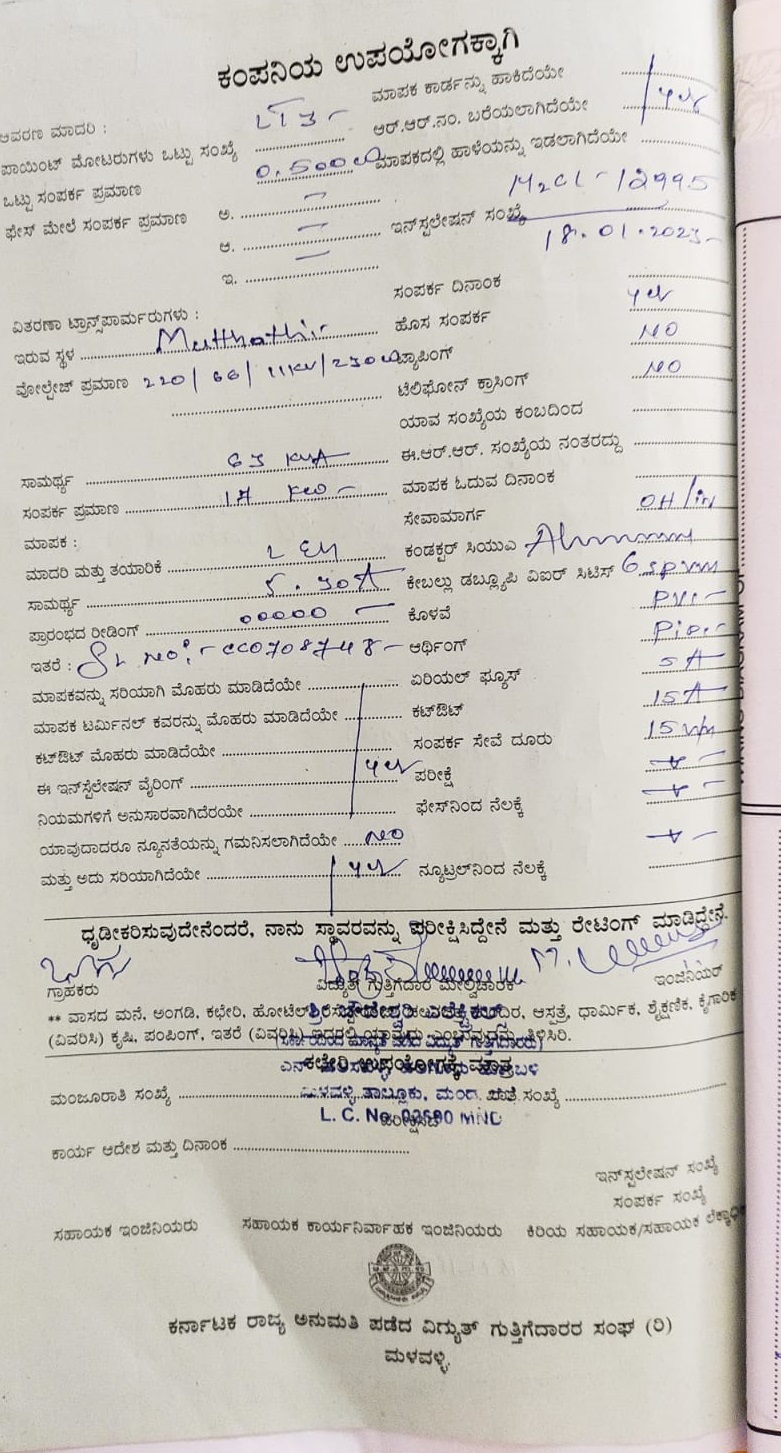 ಕಂಪನಿಯ ಉಪಯೋಗಕ್ಕಾಗಿ
ಆವರಣ ಮಾದರಿ : LT3 -
ಪಾಯಿಂಟ್ ಮೋಟರುಗಳು ಒಟ್ಟು ಸಂಖ್ಯೆ
ಒಟ್ಟು ಸಂಪರ್ಕ ಪ್ರಮಾಣ 0.500
ಫೇಸ್ ಮೇಲೆ ಸಂಪರ್ಕ ಪ್ರಮಾಣ ಅ. —
ಆ. —
ಇ. —
ವಿತರಣಾ ಟ್ರಾನ್ಸ್‌ಫಾರ್ಮರುಗಳು :
ಇರುವ ಸ್ಥಳ
ವೋಲ್ಟೇಜ್ ಪ್ರಮಾಣ 220/66/11KV/230
ಸಾಮರ್ಥ್ಯ 63 KVA
ಸಂಪರ್ಕ ಪ್ರಮಾಣ
ಮಾಪಕ :
ಮಾದರಿ ಮತ್ತು ತಯಾರಿಕೆ
ಸಾಮರ್ಥ್ಯ 5.30A
ಪ್ರಾರಂಭದ ರೀಡಿಂಗ್ 00000
ಇತರೆ : SL NO:- CC0708748-
ಮಾಪಕವನ್ನು ಸರಿಯಾಗಿ ಮೊಹರು ಮಾಡಿದೆಯೇ
ಮಾಪಕ ಟರ್ಮಿನಲ್ ಕವರನ್ನು ಮೊಹರು ಮಾಡಿದೆಯೇ
ಕಟ್‌ಔಟ್ ಮೊಹರು ಮಾಡಿದೆಯೇ
ಈ ಇನ್‌ಸ್ಟಲೇಷನ್ ವೈರಿಂಗ್ yes
ನಿಯಮಗಳಿಗೆ ಅನುಸಾರವಾಗಿದೆಯೇ
ಯಾವುದಾದರೂ ನ್ಯೂನತೆಯನ್ನು ಗಮನಿಸಲಾಗಿದೆಯೇ NO
ಮತ್ತು ಅದು ಸರಿಯಾಗಿದೆಯೇ yes
ಮಾಪಕ ಕಾರ್ಡನ್ನು ಹಾಕಿದೆಯೇ
ಆರ್.ಆರ್.ನಂ. ಬರೆಯಲಾಗಿದೆಯೇ yes
ಮಾಪಕದಲ್ಲಿ ಹಾಳೆಯನ್ನು ಇಡಲಾಗಿದೆಯೇ
ಇನ್‌ಸ್ಟಲೇಷನ್ ಸಂಖ್ಯೆ M2CL-12995
18.01.2023
ಸಂಪರ್ಕ ದಿನಾಂಕ
ಹೊಸ ಸಂಪರ್ಕ yes
ಟ್ಯಾಪಿಂಗ್ NO
ಟೆಲಿಫೋನ್ ಕ್ರಾಸಿಂಗ್ NO
ಯಾವ ಸಂಖ್ಯೆಯ ಕಂಬದಿಂದ
ಈ.ಆರ್.ಆರ್. ಸಂಖ್ಯೆಯ ನಂತರದ್ದು
ಮಾಪಕ ಓದುವ ದಿನಾಂಕ
ಸೇವಾಮಾರ್ಗ OH/
ಕಂಡಕ್ಟರ್ ಸಿಯುಎ
ಕೇಬಲ್ಲು ಡಬ್ಲ್ಯೂಪಿ ವಿಐರ್ ಸಿಟಿಸ್
ಕೊಳವೆ PVC -
ಆರ್ಥಿಂಗ್ Pipe -
ಏರಿಯಲ್ ಫ್ಯೂಸ್ 5A
ಕಟ್‌ಔಟ್ 15A
ಸಂಪರ್ಕ ಸೇವೆ ದೂರು
ಪರೀಕ್ಷೆ
ಫೇಸ್‌ನಿಂದ ನೆಲಕ್ಕೆ
ನ್ಯೂಟ್ರಲ್‌ನಿಂದ ನೆಲಕ್ಕೆ
ಧೃಡೀಕರಿಸುವುದೇನೆಂದರೆ, ನಾನು ಸ್ಥಾವರವನ್ನು ಪರೀಕ್ಷಿಸಿದ್ದೇನೆ ಮತ್ತು ರೇಟಿಂಗ್ ಮಾಡಿದ್ದೇನೆ.
ಗ್ರಾಹಕರು ವಿದ್ಯುತ್ ಗುತ್ತಿಗೆದಾರ ಮೇಲ್ವಿಚಾರಕ ಇಂಜಿನಿಯರ್
** ವಾಸದ ಮನೆ, ಅಂಗಡಿ, ಕಛೇರಿ, ಹೋಟೆಲ್, ಆಸ್ಪತ್ರೆ, ಧಾರ್ಮಿಕ, ಶೈಕ್ಷಣಿಕ, ಕೈಗಾರಿಕ
(ವಿವರಿಸಿ) ಕೃಷಿ, ಪಂಪಿಂಗ್, ಇತರೆ (ವಿವರಿಸಿ) ಇದರಲ್ಲಿ ಯಾವುದು ಎಂಬುವುದನ್ನು ತಿಳಿಸಿರಿ.
ಕಛೇರಿ ಉಪಯೋಗಕ್ಕೆ ಮಾತ್ರ
ಮಂಜೂರಾತಿ ಸಂಖ್ಯೆ ಸಂಖ್ಯೆ
ಮಳವಳ್ಳಿ ತಾಲ್ಲೂಕು,
L. C. No.
ಕಾರ್ಯ ಆದೇಶ ಮತ್ತು ದಿನಾಂಕ
ಇನ್‌ಸ್ಟಲೇಷನ್ ಸಂಖ್ಯೆ
ಸಂಪರ್ಕ ಸಂಖ್ಯೆ
ಸಹಾಯಕ ಇಂಜಿನಿಯರು ಸಹಾಯಕ ಕಾರ್ಯನಿರ್ವಾಹಕ ಇಂಜಿನಿಯರು ಕಿರಿಯ ಸಹಾಯಕ/ಸಹಾಯಕ
ಕರ್ನಾಟಕ ರಾಜ್ಯ ಅನುಮತಿ ಪಡೆದ ವಿದ್ಯುತ್ ಗುತ್ತಿಗೆದಾರರ ಸಂಘ (ರಿ)
ಮಳವಳ್ಳಿ.